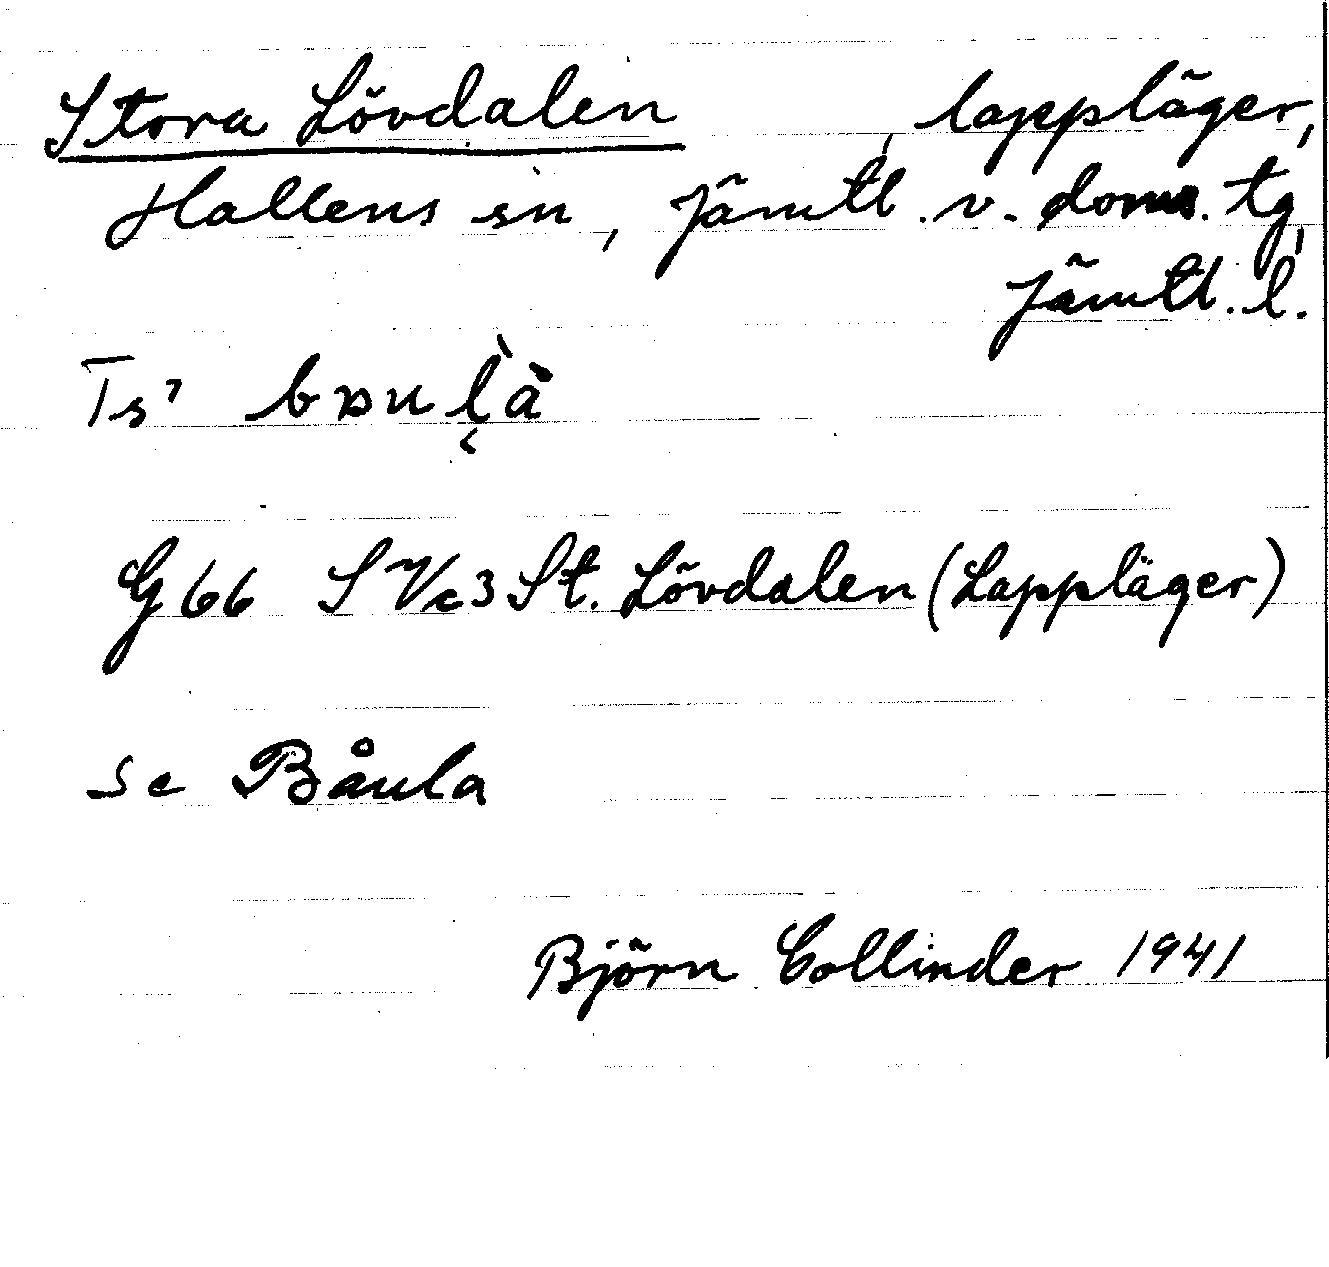 Stora Lövdalen, lappläger,
Hallens sn, Jämtl. v. doms. tg,
Jämtl. l.
Ts⁷
G 66 S Vc3 St. Lövdalen (Lappläger)
se Båula
Björn Collinder 1941